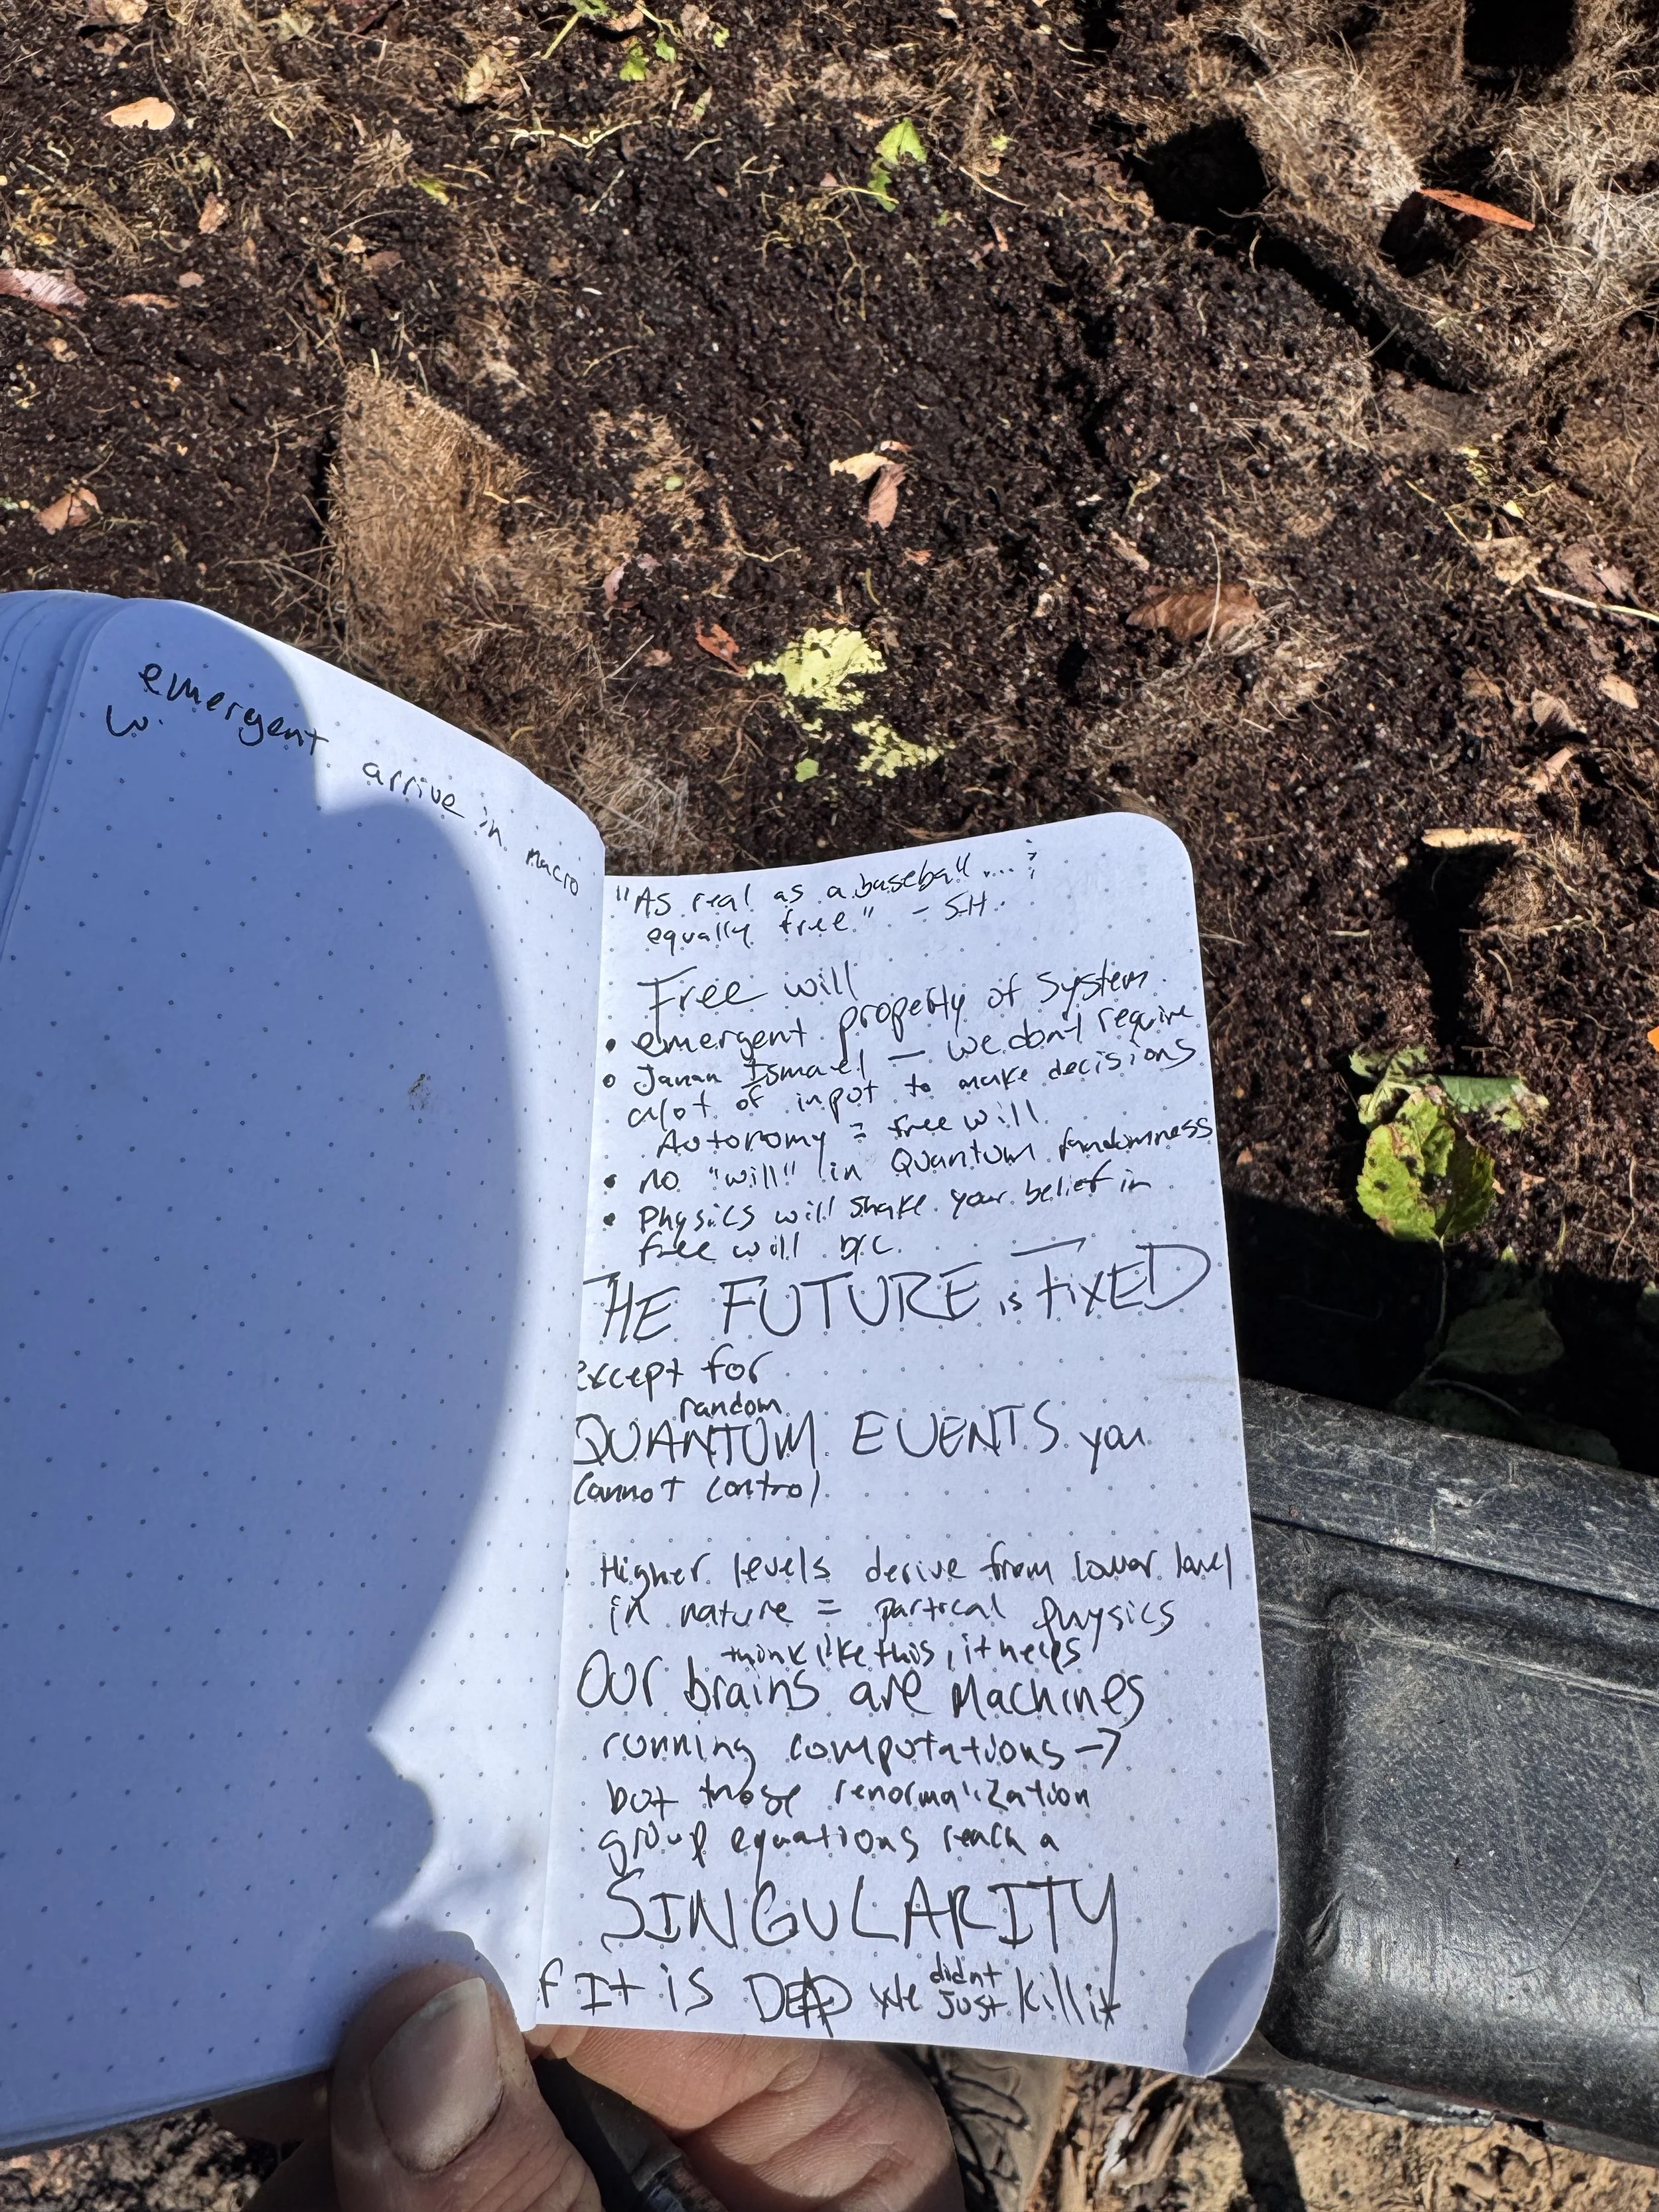 emergent
w.
arrive in macro
"As real as a baseball ....;
equally free" - SH.
Free will
• emergent property of system
• Janan Ismael — we don't require
alot of input to make decisions
Autonomy = free will
• no "will" in Quantum randomness
• Physics will shake your belief in
free will b/c
THE FUTURE is FIXED
except for
random
QUANTUM EVENTS you
cannot control
Higher levels derive from lower level
in nature = partical physics
think like this, it helps
Our brains are Machines
running computations →
but those renormalization
group equations reach a
SINGULARITY
If It is DEAD We didnt just kill it